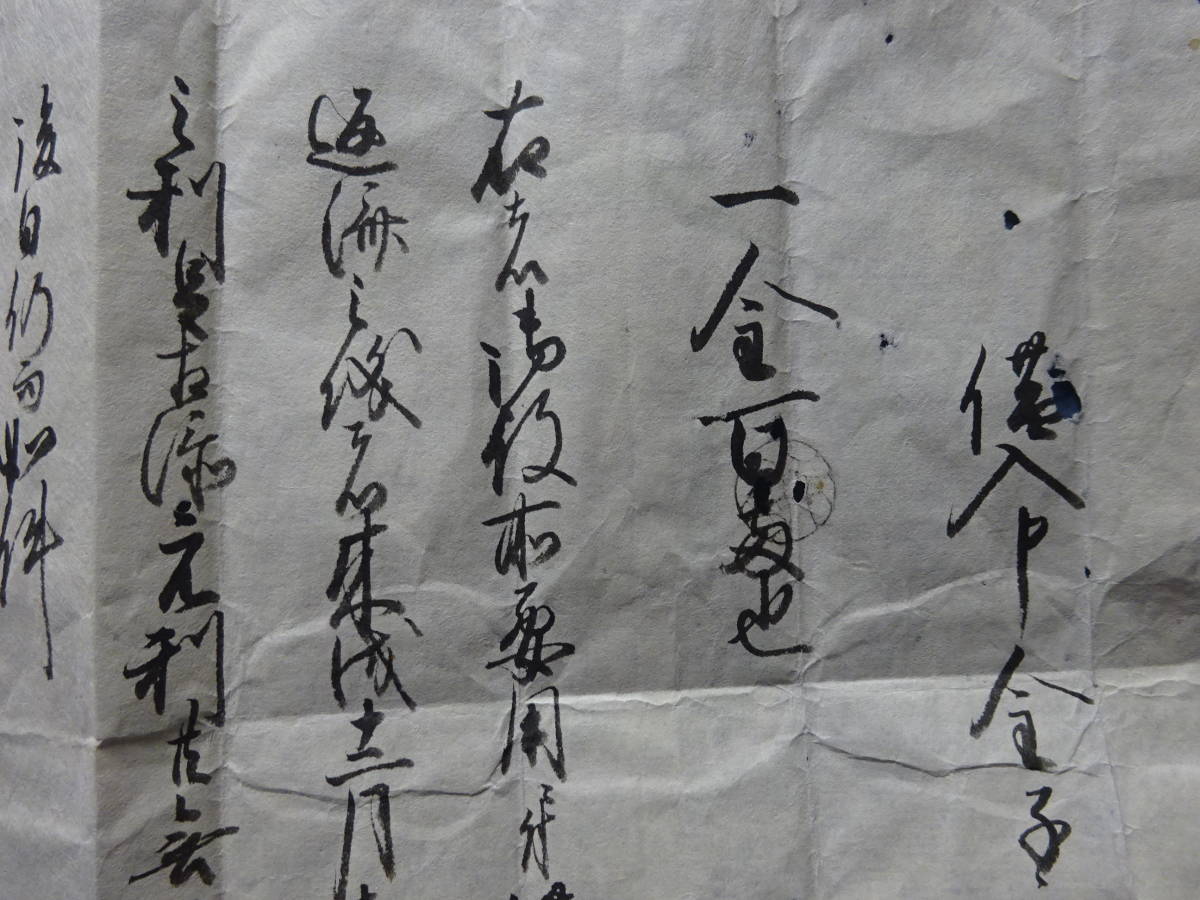 借入申金子
一金百両也
右者役所要用ニ付
返済之儀者来戌十二月
之利足相添元利共無
後日仍而如件